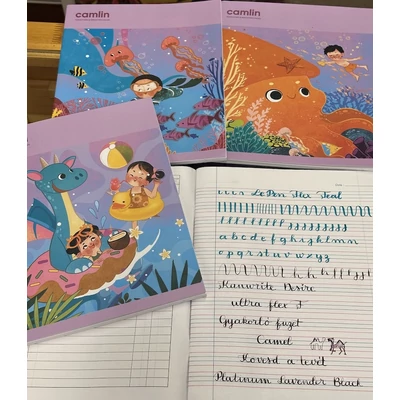 camlin
camlin
LePen Flex Teal
a b c d e f g h i j k l m n
o p q r s t u v w x y z
Kanwrite Desire
ultra flex F
Gyakorló füzet
Camel
Kövesd a tevét
Platinum Lavender Black